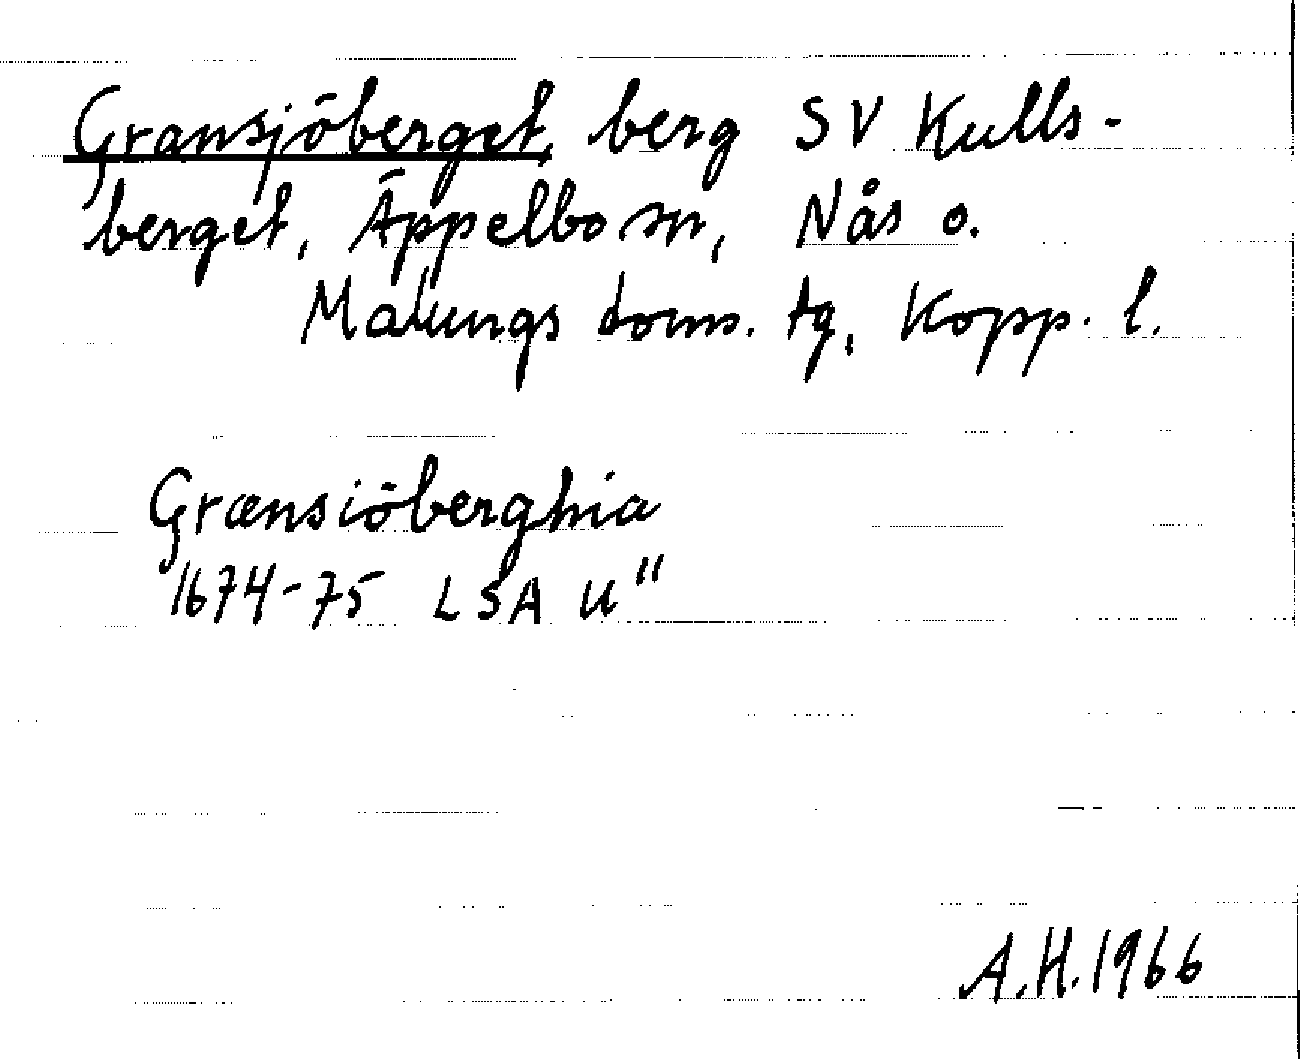 Gransjöberget, berg SV Kulls-
berget, Äppelbo sn, Nås o.
Malungs doms. tg, Kopp. l.
Grænsiöberghia
1674-75 LSA U"
A.H. 1966